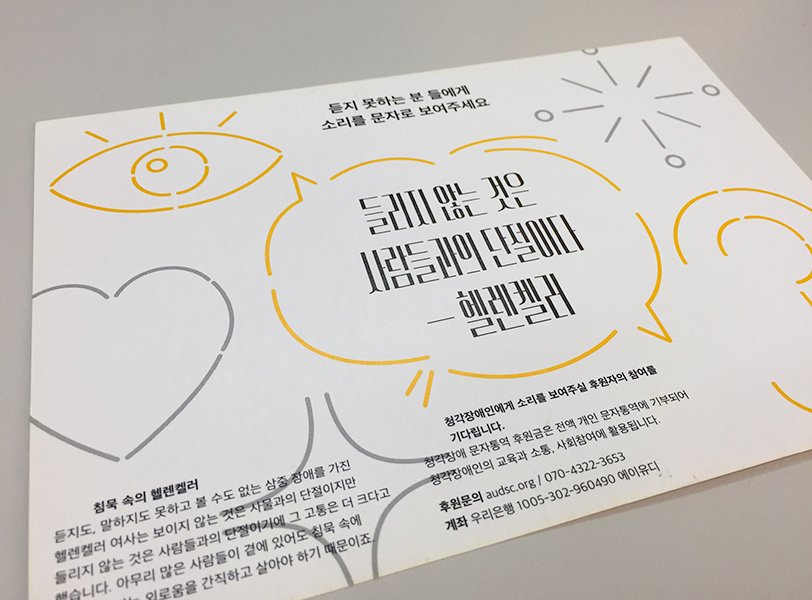 듣지 못하는 분 들에게
소리를 문자로 보여주세요
들리지 않는 것은
사람들과의 단절이다
— 헬렌켈러
청각장애인에게 소리를 보여주실 후원자의 참여를
기다립니다.
청각장애 문자통역 후원금은 전액 개인 문자통역에 기부되어
청각장애인의 교육과 소통, 사회참여에 활용됩니다.
후원문의 audsc.org / 070-4322-3653
계좌 우리은행 1005-302-960490 에이유디
침묵 속의 헬렌켈러
듣지도, 말하지도 못하고 볼 수도 없는 삼중 장애를 가진
헬렌켈러 여사는 보이지 않는 것은 사물과의 단절이지만
들리지 않는 것은 사람들과의 단절이기에 그 고통은 더 크다고
했습니다. 아무리 많은 사람들이 곁에 있어도 침묵 속에
외로움을 간직하고 살아야 하기 때문이죠.